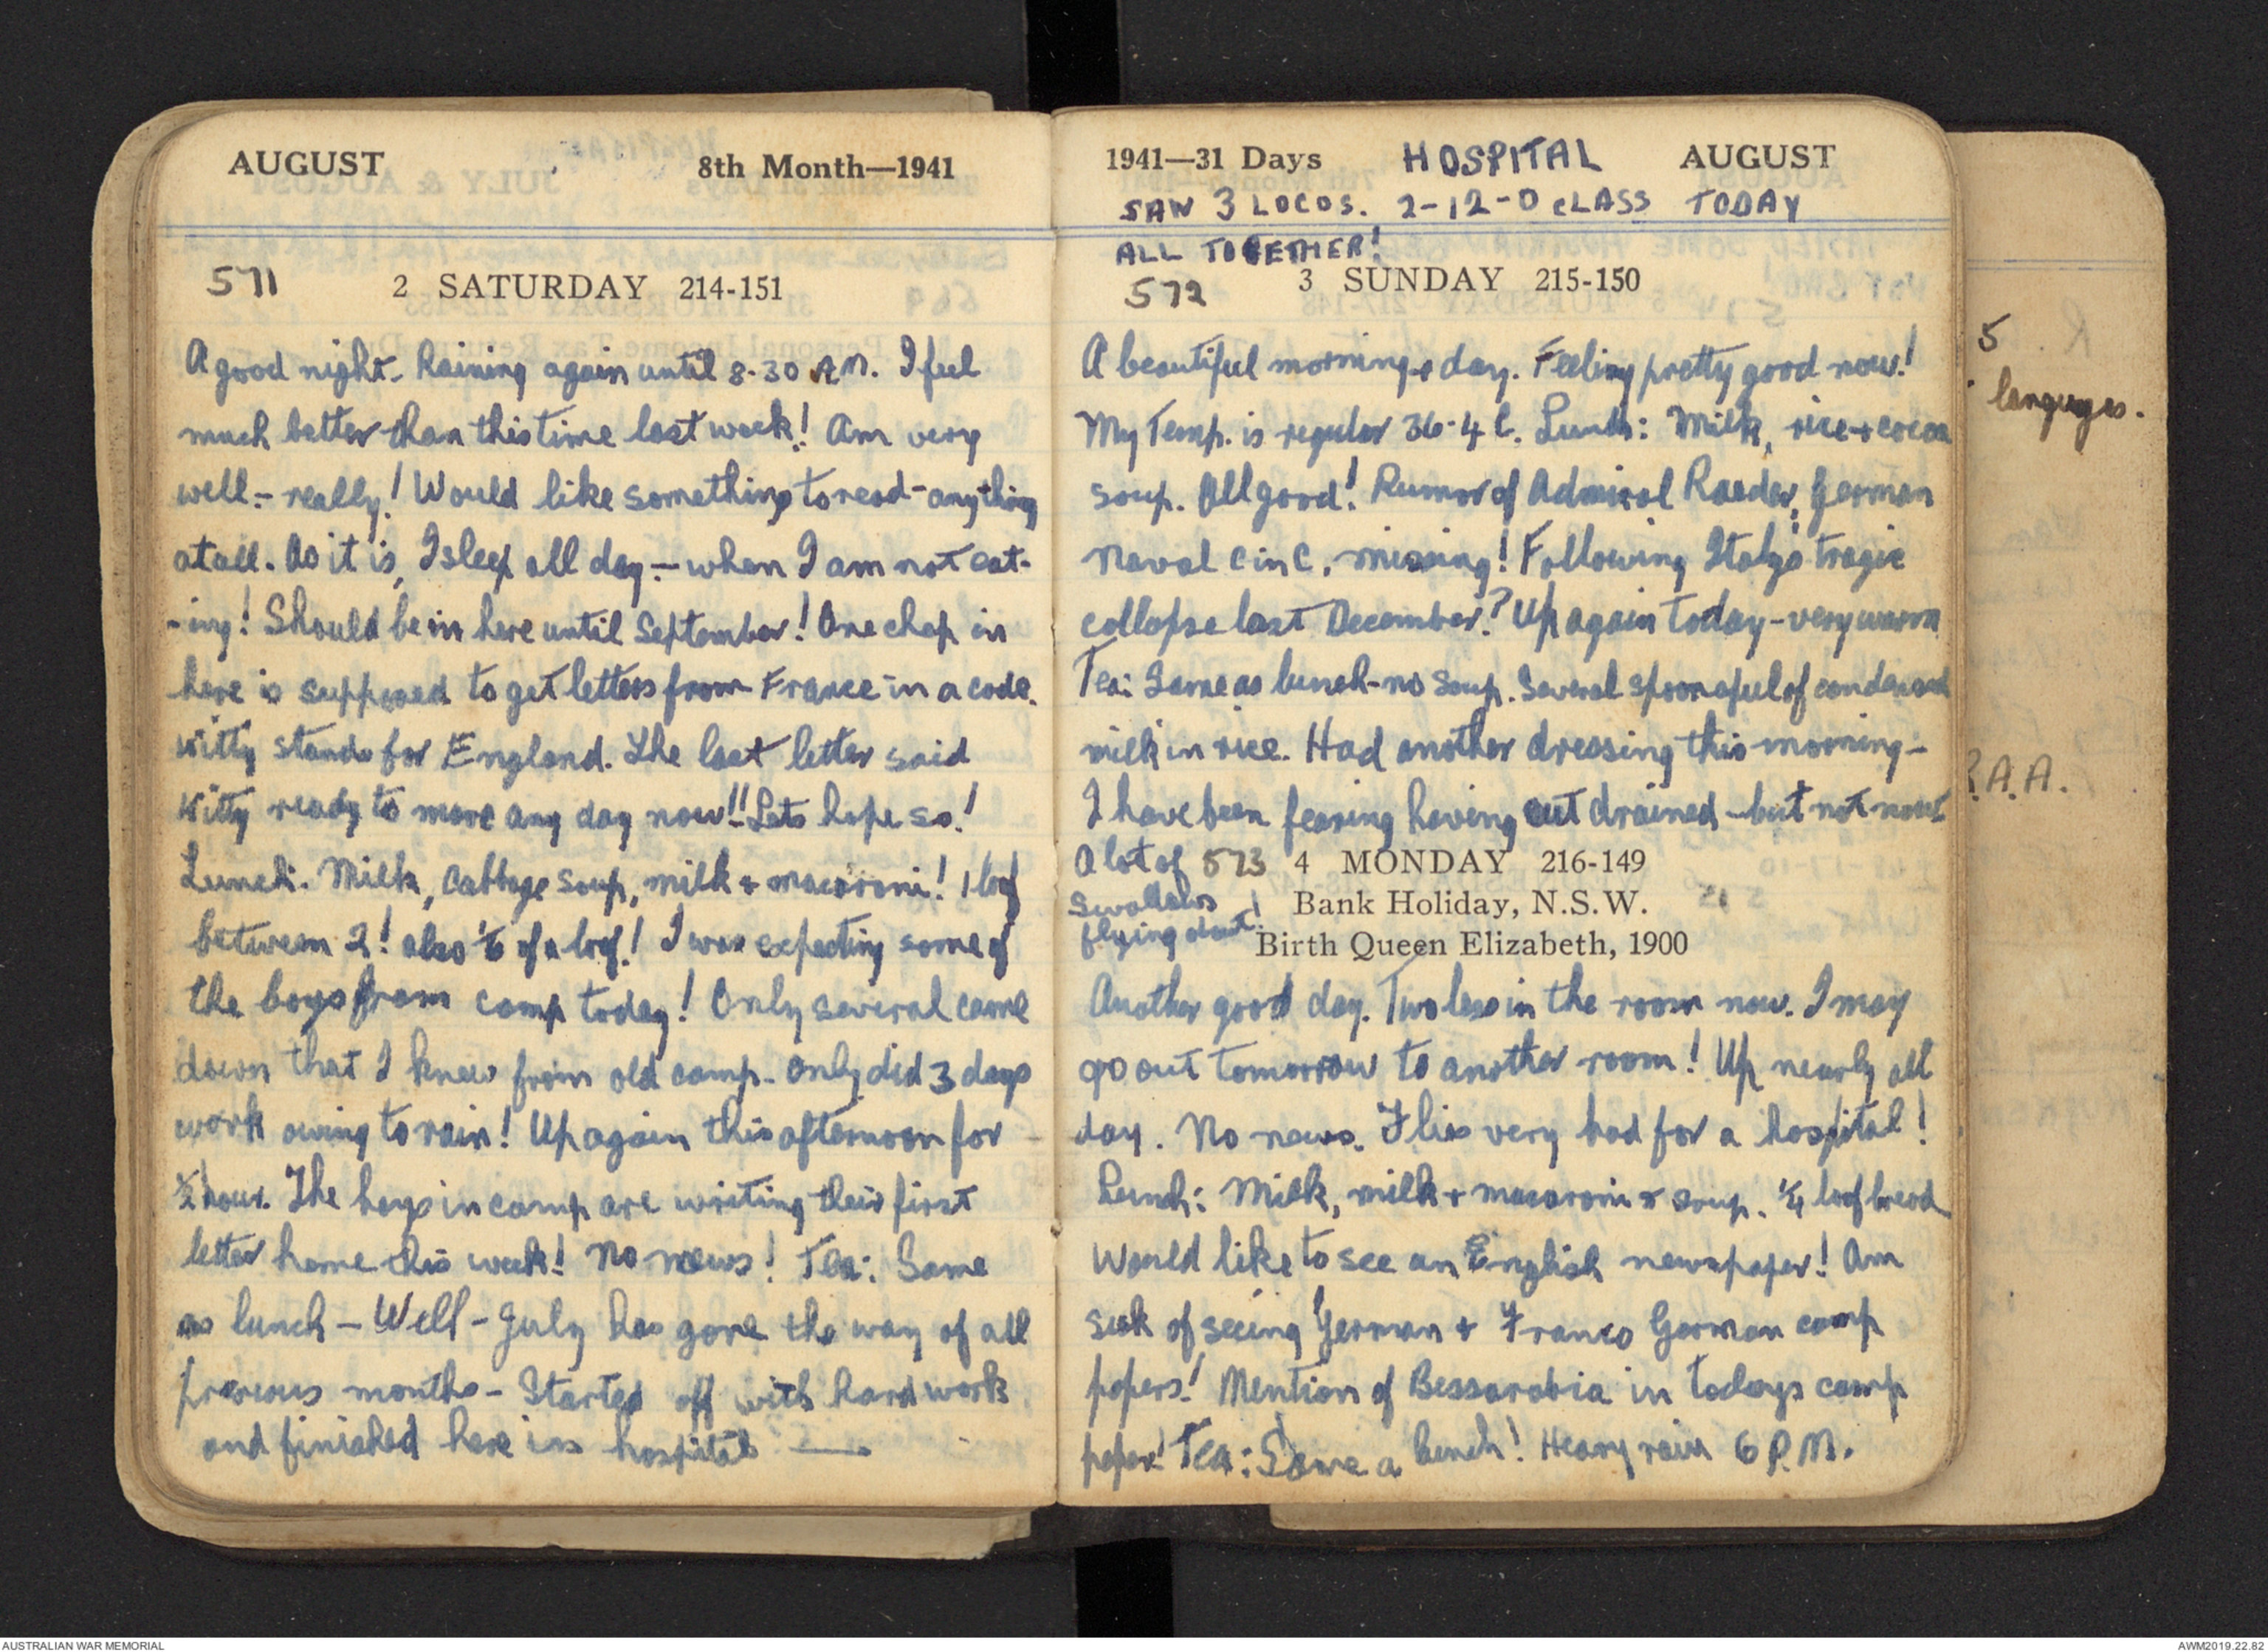 AUGUST 8th Month—1941
571 2 SATURDAY 214-151
A good night. Raining again until 8.30 A.M. I feel
much better than this time last week! Am very
well - really! Would like something to read - anything
at all. As it is, I sleep all day - when I am not eat-
-ing! Should be in here until September! One chap in
here is supposed to get letters from France in a code.
Kitty stands for England. The last letter said
Kitty ready to move any day now!! Lets hope so!
Lunch. Milk, cabbage soup, milk + macaroni! 1 loaf
between 2! also 1/6 of a loaf! I was expecting some of
the boys from camp today! Only several came
down that I knew from old camp. Only did 3 days
work owing to rain! Up again this afternoon for
½ hour. The boys in camp are writing their first
letter home this week! No news! Tea: Same
as lunch - Well - July has gone the way of all
previous months - Started off with hard work
and finished here in hospital —
1941—31 Days HOSPITAL AUGUST
SAW 3 LOCOS. 2-12-0 CLASS TODAY
ALL TOGETHER!
572 3 SUNDAY 215-150
A beautiful morning + day. Feeling pretty good now!
My Temp. is regular 36.4 C. Lunch: Milk, rice + cocoa
soup. All good! Rumor of Admiral Raeder, German
Naval C in C, missing! Following Italy's tragic
collapse last December? Up again today - very warm
Tea: Same as lunch - no soup. Several spoonsful of condensed
milk in rice. Had another dressing this morning -
I have been fearing having cut drained - but not now!
A lot of 573 4 MONDAY 216-149
swallows Bank Holiday, N.S.W.
flying about! Birth Queen Elizabeth, 1900
Another good day. Two less in the room now. I may
go out tomorrow to another room! Up nearly all
day. No news. Flies very bad for a hospital!
Lunch: Milk, milk + macaroni + soup. ¼ loaf bread
Would like to see an English newspaper! Am
sick of seeing German + Franco German camp
papers! Mention of Bessarabia in todays camp
paper! Tea: Same a lunch! Heavy rain 6 P.M.
5
languages.
R.A.A.
AUSTRALIAN WAR MEMORIAL
AWM2019.22.82